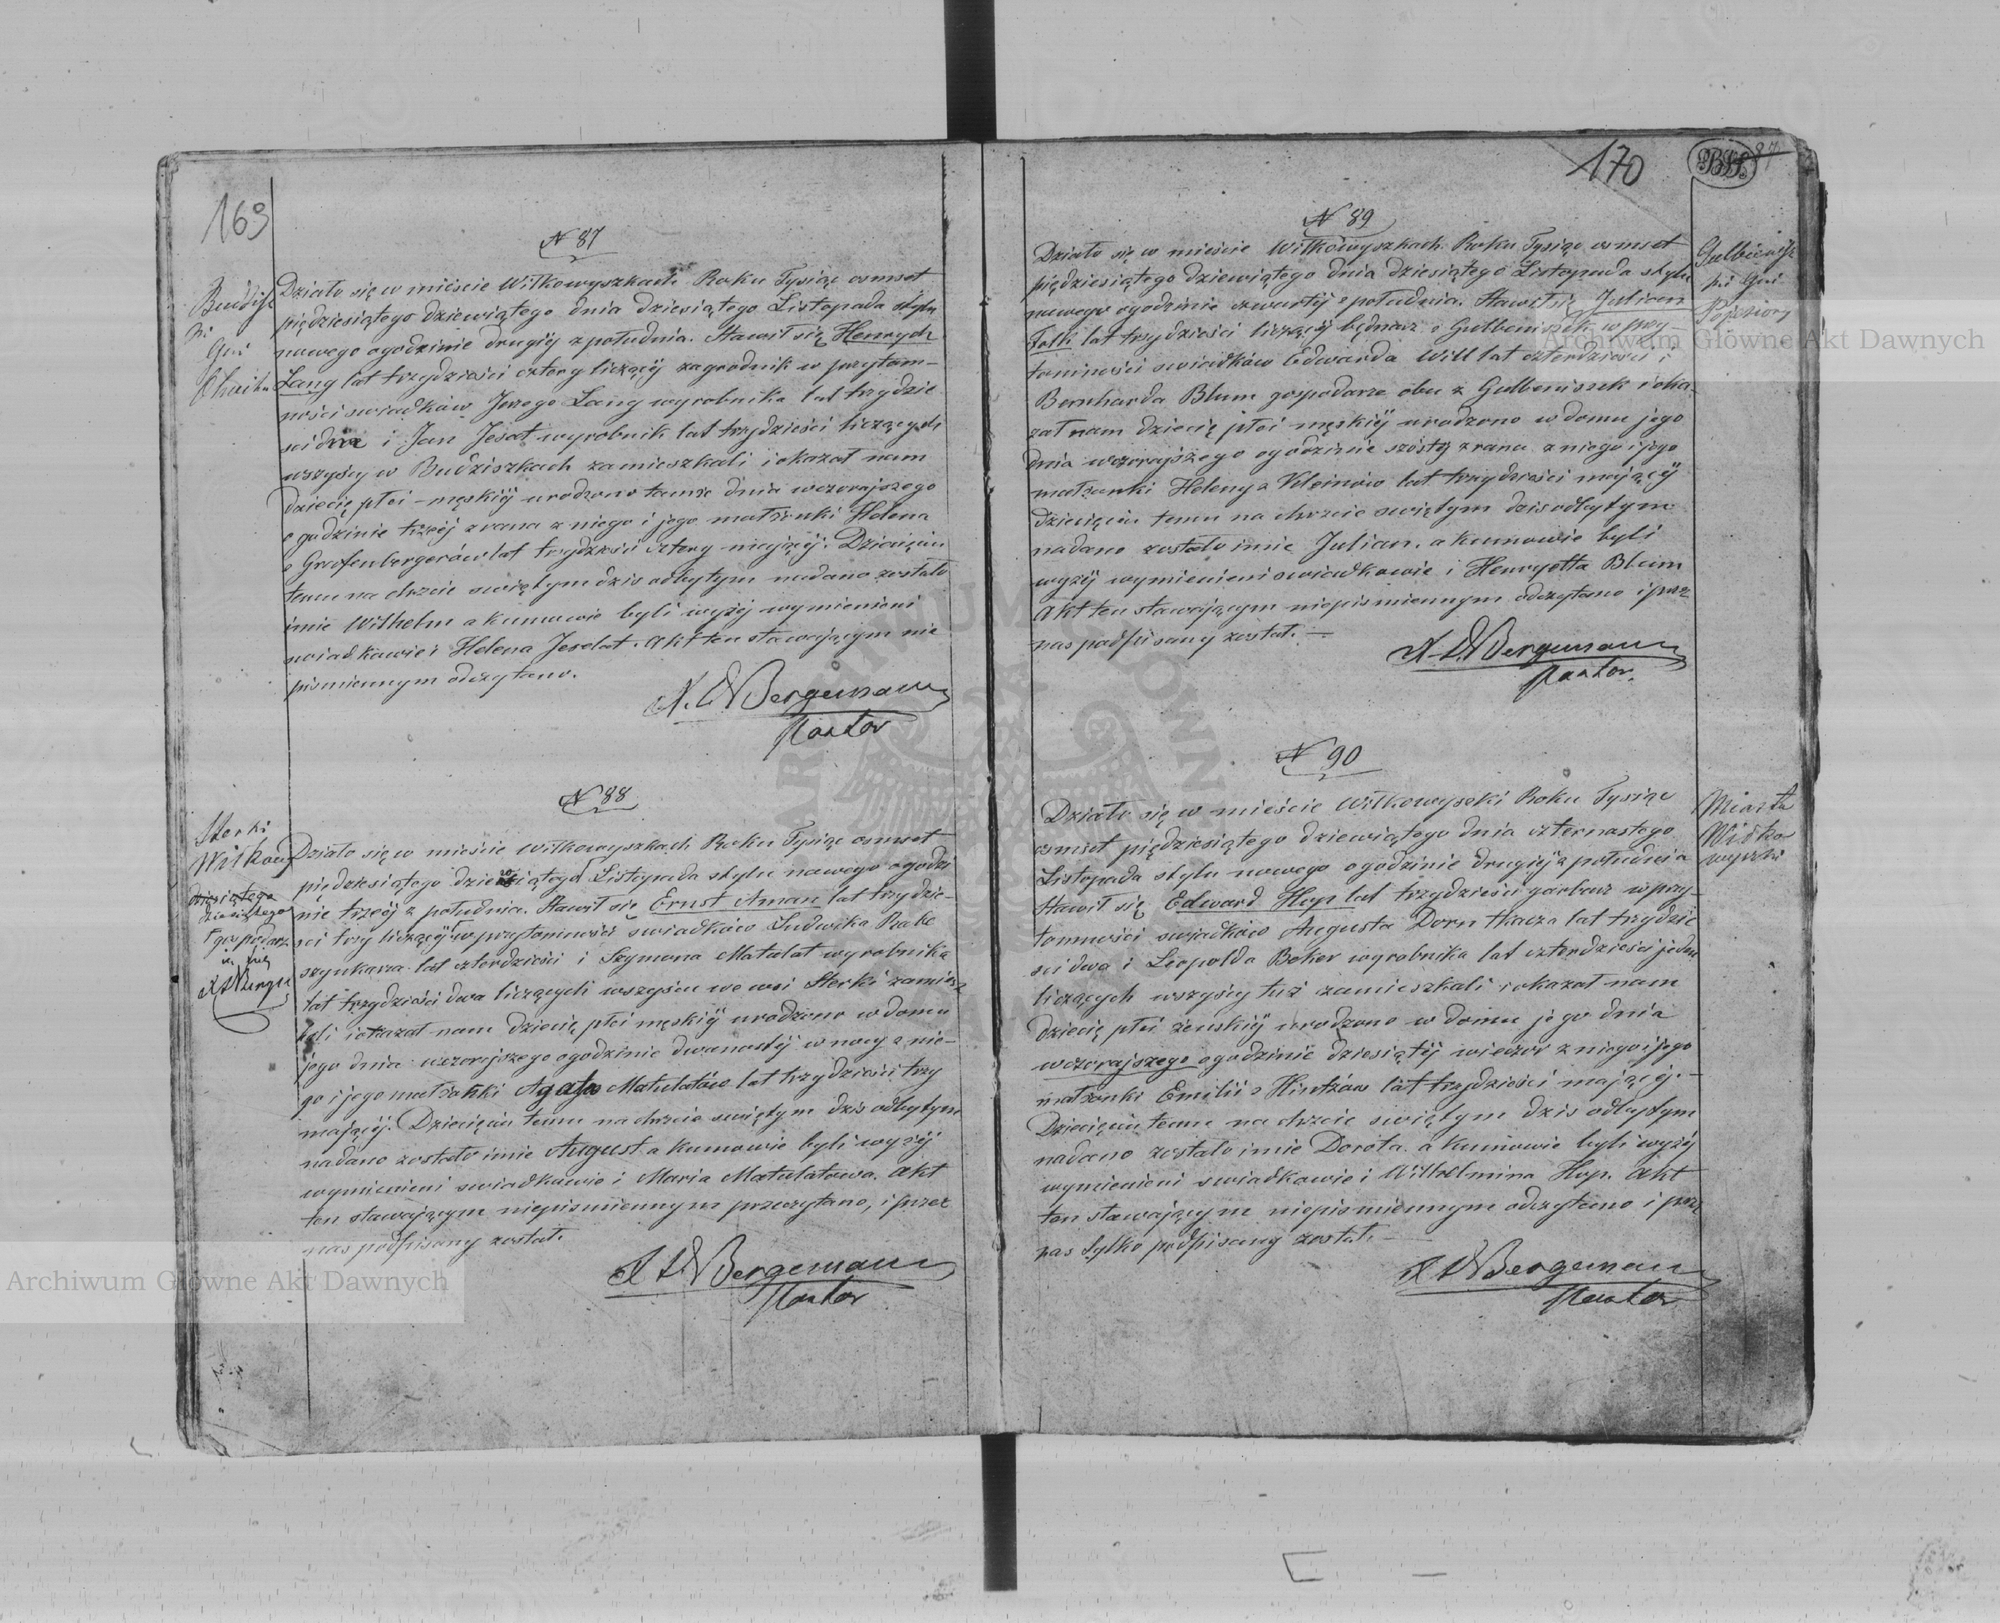 169
N 87
Budzisz
ki
Gmi
Działo się w mieście Wiłkowyszkach Roku Tysiąc osmset
piędziesiątego dziewiątego dnia dziesiątego Listopada stylu
nowego ogodzinie drugiéj z południa. Stawił się Henrych
Lang lat trzydzieści cztery liczący zagrodnik w przytom-
ności swiadków Jerzego Lang wyrobnika lat trzydzie
sci dwa i Jan Jesat wyrobnik lat trzydzieści liczących
wszyscy w Budziszkach zamieszkali i okazał nam
dziecię płci męskiéj urodzone tamże dnia wczorajszego
o godzinie trzeéj z rana z niego i jego małżonki Helena
z Grefenbergerów lat trzydzieści cztery mającéj. Dziecięciu
temu na chrzcie swiętym dzis odbytym nadane zostało
imie Wilhelm a kumowie byli wyzéj wymienieni
swiadkowie i Helena Jeselat. Akt ten stawającym nie
pismiennym odczytano.
Bergemann
Pastor
N 88
Sterki
Wiłkowy
dziesiątego
gospodarz
Działo się w mieście Wiłkowyszkach Roku Tysiąc osmset
piędziesiątego dziewiątego Listopada stylu nowego ogodzi
nie trzeéj z południa. Stawił się Ernst Aman lat trzydzie-
sci trzy liczący w przytomności swiadków Ludwika Rake
szynkarza lat czterdzieści i Szymona Matulat wyrobnika
lat trzydzieści dwa liczących wszyscy we wsi Sterki zamiesz
kali i okazał nam dziecię płci męskiéj urodzone w domu
jego dnia wczorajszego ogodzinie dwunastéj w nocy z nie-
go i jego małżonki Agata Matulatów lat trzydzieści trzy
mającéj. Dziecięciu temu na chrzcie swiętym dzis odbytym
nadano zostało imie August a kumowie byli wyzéj
wymienieni swiadkowie i Maria Matulatowa. Akt
ten stawającym niepismiennym przeczytano, i przez
nas podpisany został.
Bergemann
Pastor
170
87
N 89
Działo się w mieście Wiłkowyszkach Roku Tysiąc osmset
pięдziesiątego dziewiątego dnia dziesiątego Listopada stylu
nowego ogodzinie czwartéj z południa. Stawił się Julian
Falk lat trzydzieści liczący będnarz z Gulbeniszek w przy-
tomności swiadków Edwarda Will lat czterdzieści i
Bernharda Blum gospodarze obu z Gulbeniszek i oka
zał nam dziecię płci męskiéj urodzono w domu jego
dnia wczorajszego ogodzinie szóstéj z rana z niego i jego
małżonki Heleny z Kleinów lat trzydzieści mającéj
dziecięciu temu na chrzcie swiętym dzis odbytym
nadano zostało imie Julian. a kumowie byli
wyzéj wymienieni swiadkowie i Henryetta Blum
Akt ten stawającym niepismiennym odczytano i prze
nas podpisany został. —
Bergemann
Pastor.
N 90
Miasta
Wiłko
wyszki
Działo się w mieście Wiłkowyszki Roku Tysiąc
osmset pięдziesiątego dziewiątego dnia czternastego
Listopada stylu nowego ogodzinie drugiéj z południa
Stawił się Edward Hop lat trzydzieści garbarz w przy-
tomności swiadków Augusta Dorn tkacza lat trzydzie
sci dwa i Leopolda Beker wyrobnika lat czterdzieści jeden
liczących wszyscy tuż zamieszkali i okazał nam
dziecię płci żeńskiéj urodzono w domu jego dnia
wczorajszego ogodzinie dziesiątéj wieczór z niego i jego
małżonki Emilii z Hintzów lat trzydzieści mającéj. —
Dziecięciu temu na chrzcie swiętym dzis odbytym
nadano zostało imie Dorota. a kumowie byli wyzéj
wymienieni swiadkowie i Wilhelmina Hop. Akt
ten stawającym niepismiennym odczytano i prze
nas tylko podpisany został. —
Bergemann
Pastor
Archiwum Główne Akt Dawnych
Archiwum Główne Akt Dawnych